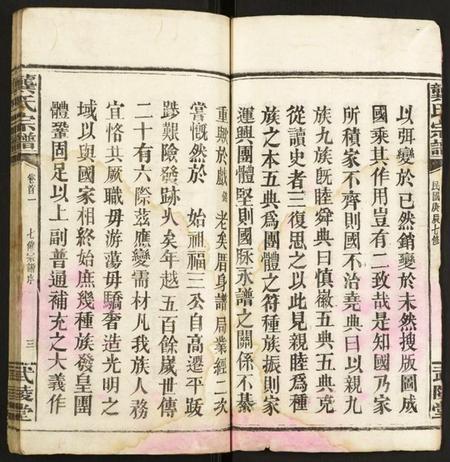 民國庚辰七修
以弭變於已然銷變於未然搜版圖成
國乘其作用豈有二致哉是知國乃家
所積家不齊則國不治堯典曰以親九
族九族既睦舜典曰慎徽五典五典克
從讀史者三復思之以此見親睦爲種
族之本五典爲團體之符種族振則家
運興團體堅則國脉永譜之關係不綦
重歟於戲 老矣厝身譜局業經二次
嘗慨然於 始祖福三公自高遷平跋
踄艱險發跡火矣年越五百餘歲世傳
二十有六際茲應變需材凡我族人務
宜恪共厥職毋游蕩毋驕奢造光明之
域以與國家相終始庶幾種族發皇團
體鞏固足以上副普通補充之大義作
龔氏宗譜
卷首一
七修
序
三
武陵堂